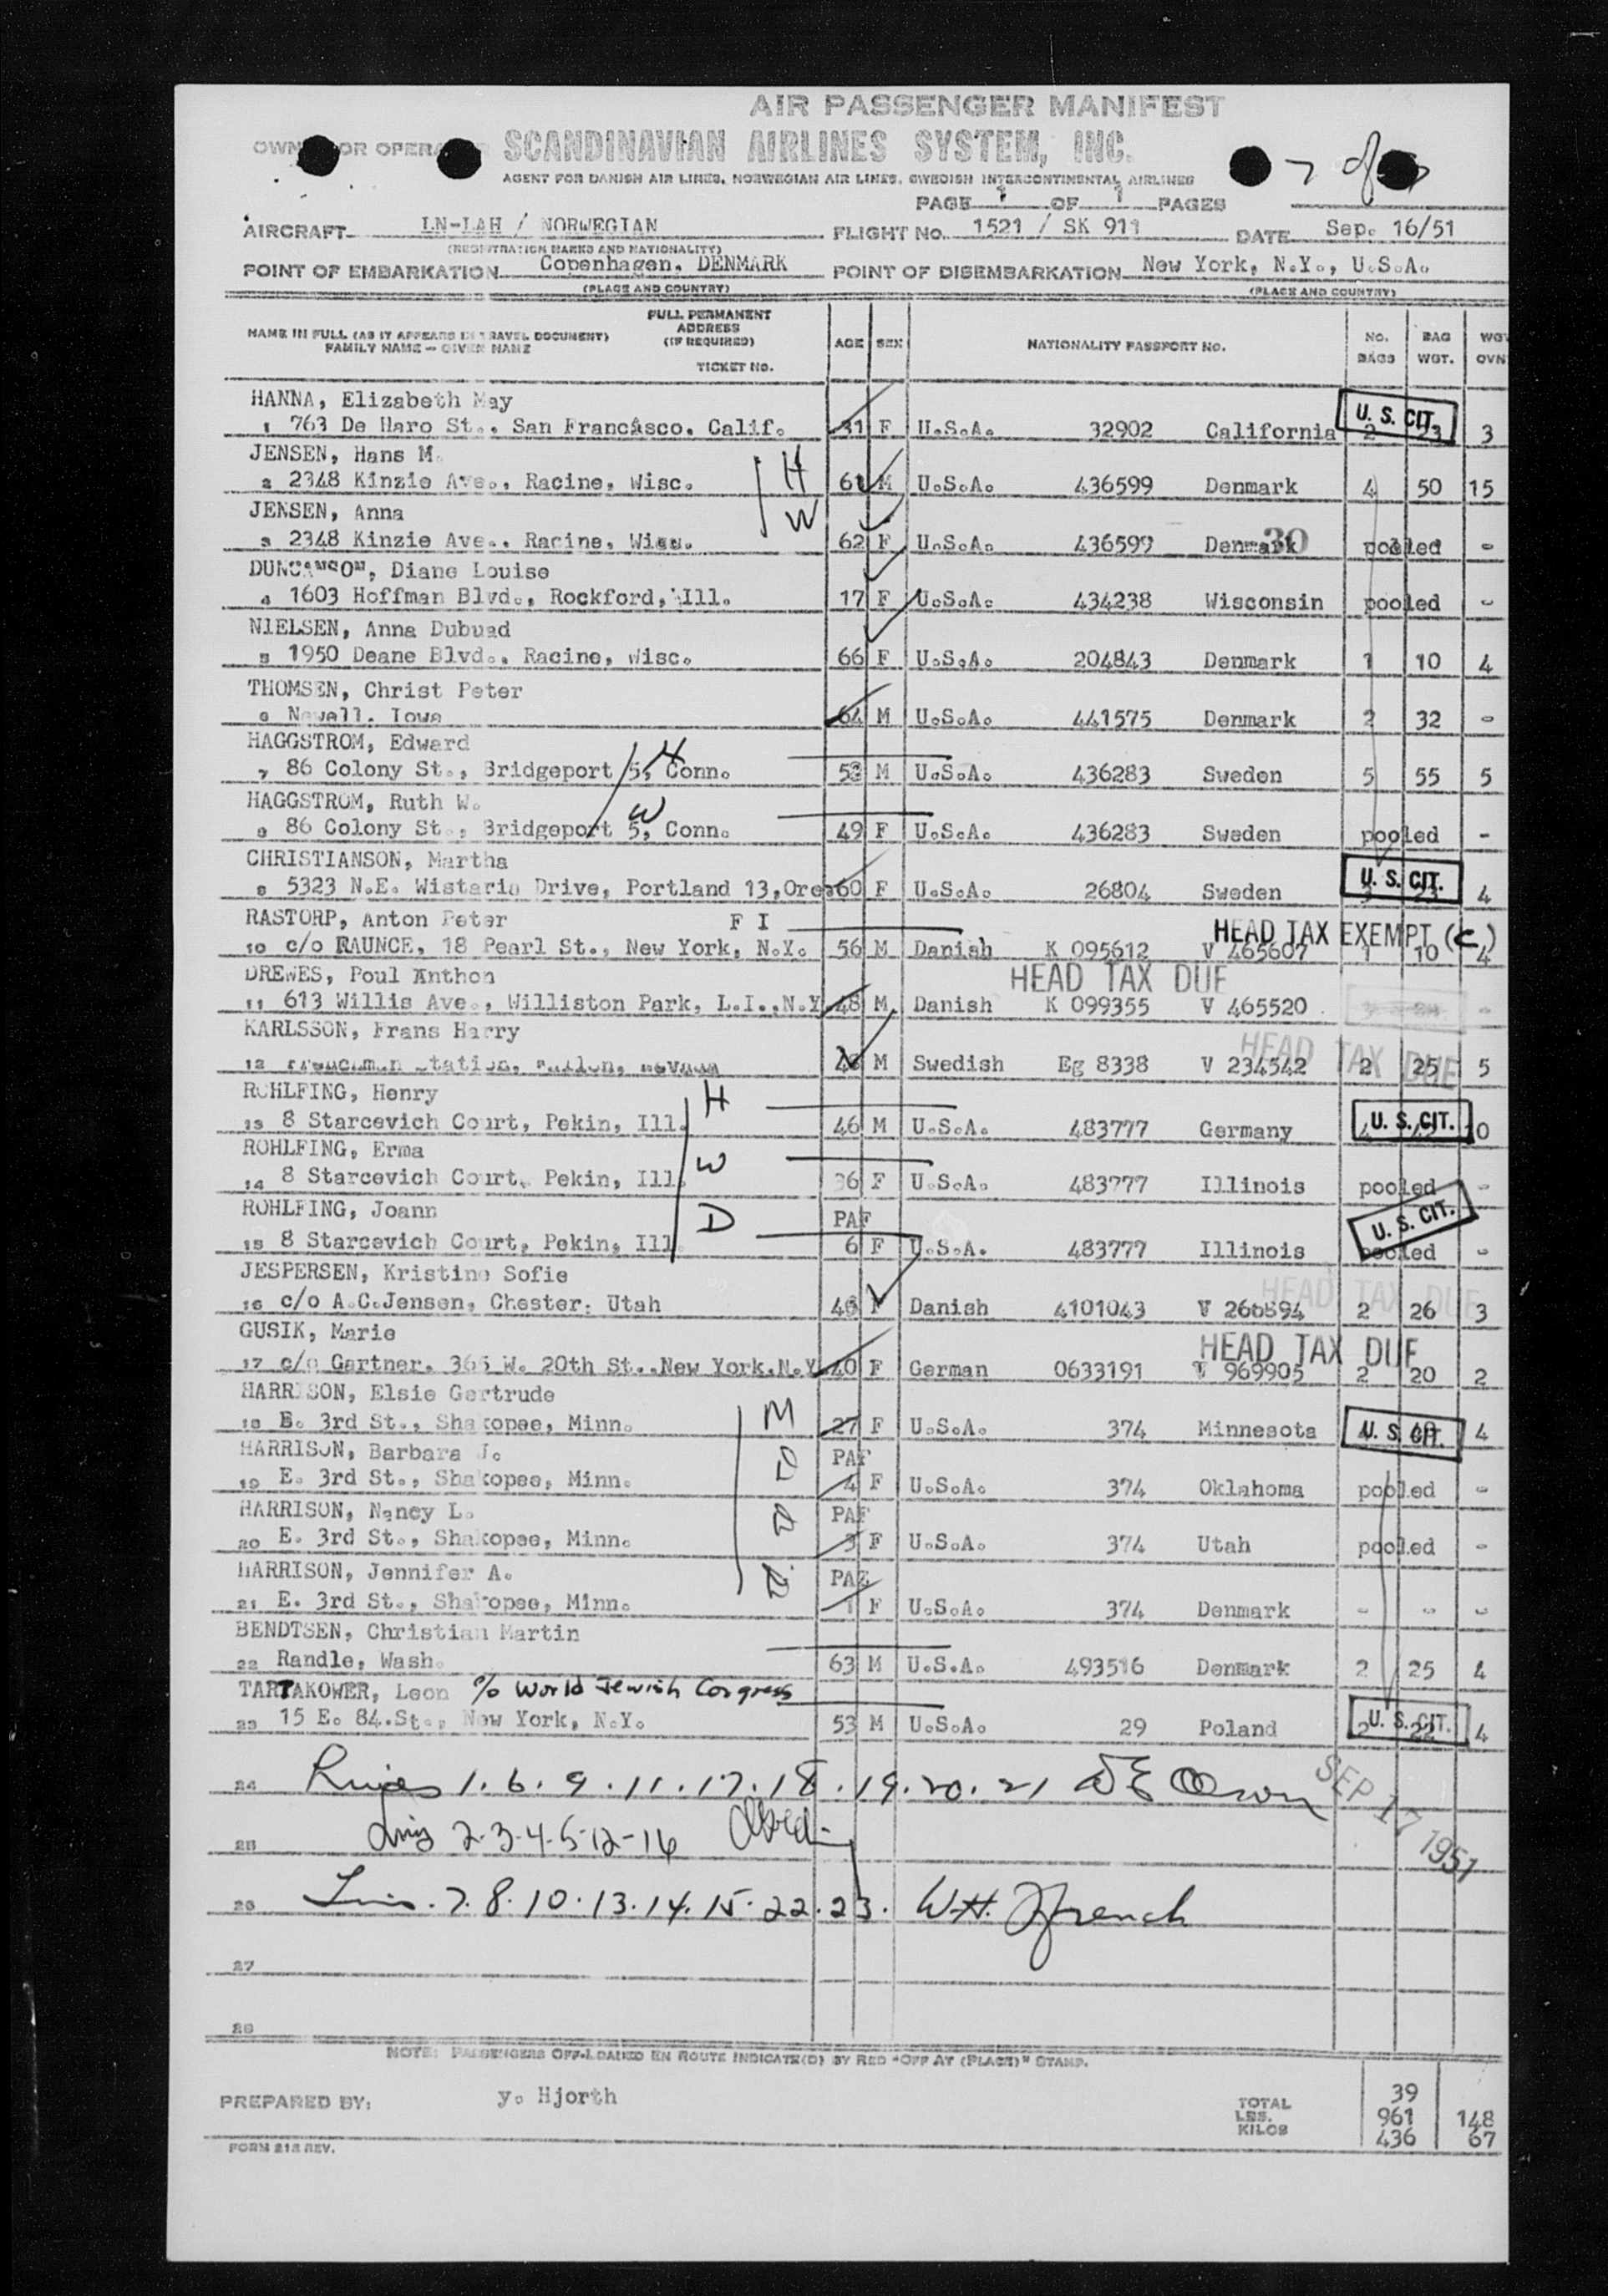 AIR PASSENGER MANIFEST
OWNER OR OPERATOR SCANDINAVIAN AIRLINES SYSTEM, INC.
AGENT FOR DANISH AIR LINES, NORWEGIAN AIR LINES, SWEDISH INTERCONTINENTAL AIRLINES
PAGE 1 OF 1 PAGES
AIRCRAFT LN-LAH / NORWEGIAN FLIGHT NO. 1521 / SK 911 DATE Sep. 16/51
(REGISTRATION MARKS AND NATIONALITY)
POINT OF EMBARKATION Copenhagen, DENMARK POINT OF DISEMBARKATION New York, N.Y., U.S.A.
(PLACE AND COUNTRY) (PLACE AND COUNTRY)
NAME IN FULL (AS IT APPEARS IN TRAVEL DOCUMENT) FAMILY NAME — GIVEN NAME FULL PERMANENT ADDRESS (IF REQUIRED) TICKET NO. AGE SEX NATIONALITY PASSPORT NO. NO. BAGS BAG WGT. WGT OVN
HANNA, Elizabeth May U. S. CIT.
1 763 De Haro St., San Francisco, Calif. 31 F U.S.A. 32902 California 2 23 3
JENSEN, Hans M. H
2 2348 Kinzie Ave., Racine, Wisc. 61 M U.S.A. 436599 Denmark 4 50 15
JENSEN, Anna W
3 2348 Kinzie Ave., Racine, Wisc. 62 F U.S.A. 436599 Denmark 30 pooled -
DUNCANSON, Diane Louise
4 1603 Hoffman Blvd., Rockford, Ill. 17 F U.S.A. 434238 Wisconsin pooled -
NIELSEN, Anna Dubuad
5 1950 Deane Blvd., Racine, Wisc. 66 F U.S.A. 204843 Denmark 1 10 4
THOMSEN, Christ Peter
6 Newell, Iowa 64 M U.S.A. 441575 Denmark 2 32 -
HAGGSTROM, Edward H
7 86 Colony St., Bridgeport 5, Conn. 53 M U.S.A. 436283 Sweden 5 55 5
HAGGSTROM, Ruth W. W
8 86 Colony St., Bridgeport 5, Conn. 49 F U.S.A. 436283 Sweden pooled -
CHRISTIANSON, Martha U. S. CIT.
9 5323 N.E. Wistaria Drive, Portland 13, Ore. 60 F U.S.A. 26804 Sweden 3 23 4
RASTORP, Anton Peter F I HEAD TAX EXEMPT (C)
10 c/o RAUNCE, 18 Pearl St., New York, N.Y. 56 M Danish K 095612 V 465607 1 10 4
DREWES, Poul Anthon HEAD TAX DUE
11 613 Willis Ave., Williston Park, L.I.,N.Y. 48 M Danish K 099355 V 465520 -
KARLSSON, Frans Harry HEAD TAX DUE
12 Frenchman Station, Fallon, Nevada M Swedish Eg 8338 V 234542 2 25 5
ROHLFING, Henry H
13 8 Starcevich Court, Pekin, Ill. 46 M U.S.A. 483777 Germany U. S. CIT. 10
ROHLFING, Erma W
14 8 Starcevich Court, Pekin, Ill. 36 F U.S.A. 483777 Illinois pooled -
ROHLFING, Joann D PAF U. S. CIT.
15 8 Starcevich Court, Pekin, Ill. 6 F U.S.A. 483777 Illinois pooled -
JESPERSEN, Kristine Sofie HEAD TAX DUE
16 c/o A.C.Jensen, Chester, Utah 46 F Danish 4101043 V 266894 2 26 3
GUSIK, Marie HEAD TAX DUE
17 c/o Gartner, 365 W. 20th St.,New York,N.Y. 40 F German 0633191 V 969905 2 20 2
HARRISON, Elsie Gertrude M
18 E. 3rd St., Shakopee, Minn. 27 F U.S.A. 374 Minnesota U. S. CIT. 4
HARRISON, Barbara J. D PAF
19 E. 3rd St., Shakopee, Minn. 4 F U.S.A. 374 Oklahoma pooled -
HARRISON, Nancy L. D PAF
20 E. 3rd St., Shakopee, Minn. 3 F U.S.A. 374 Utah pooled -
HARRISON, Jennifer A. D PAF
21 E. 3rd St., Shakopee, Minn. 1 F U.S.A. 374 Denmark - - -
BENDTSEN, Christian Martin
22 Randle, Wash. 63 M U.S.A. 493516 Denmark 2 25 4
TARTAKOWER, Leon c/o World Jewish Congress
23 15 E. 84.St., New York, N.Y. 53 M U.S.A. 29 Poland 2 22 U. S. CIT. 4
24 1. 6. 9. 11. 17. 18. 19. 20. 21 SEP 17 1951
25 2-3-4-5-12-16
26 7. 8. 10. 13. 14. 15. 22. 23. W.H. French
27
28
NOTE: PASSENGERS OFF-LOADED EN ROUTE INDICATE(D) BY RED "OFF AT (PLACE)" STAMP.
PREPARED BY: y. Hjorth TOTAL 39
LBS. 961 148
KILOS 436 67
FORM 212 REV.